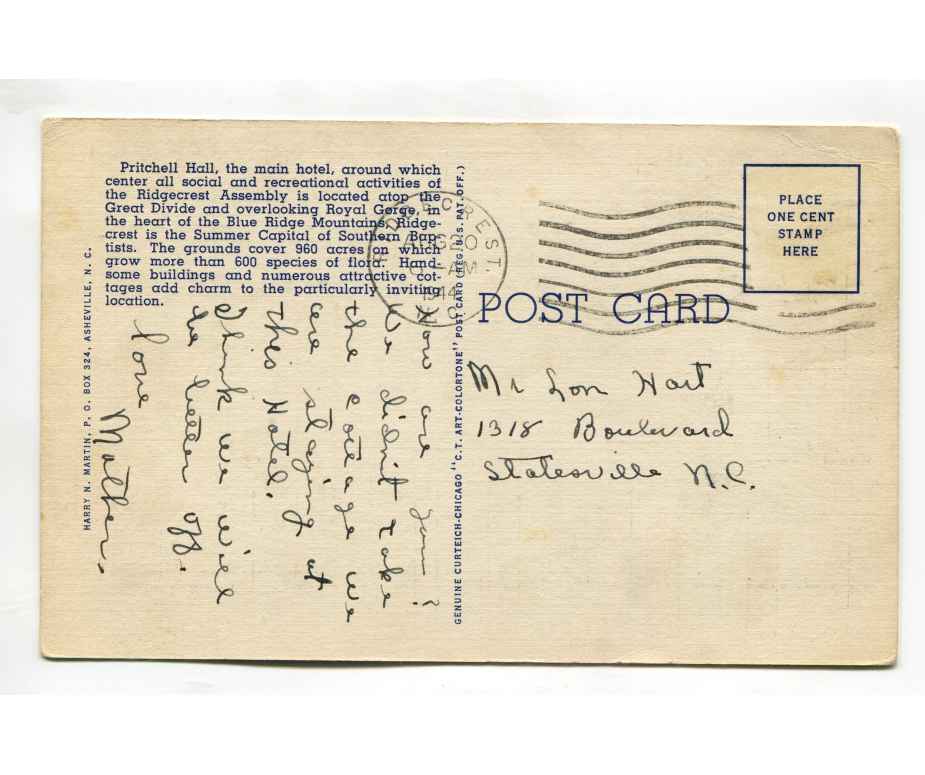 Pritchell Hall, the main hotel, around which
center all social and recreational activities of
the Ridgecrest Assembly is located atop the
Great Divide and overlooking Royal Gorge, in
the heart of the Blue Ridge Mountains, Ridge-
crest is the Summer Capital of Southern Bap-
tists. The grounds cover 960 acres on which
grow more than 600 species of flora. Hand-
some buildings and numerous attractive cot-
tages add charm to the particularly inviting
location.
How are you?
We didn't take
the cottage we
are staying at
this Hotel.
Think we will
be better off.
Love
Mother.
HARRY N. MARTIN, P. O. BOX 324, ASHEVILLE, N. C.
GENUINE CURTEICH-CHICAGO "C.T. ART-COLORTONE" POST CARD (REG. U.S. PAT. OFF.)
RIDGECREST.
AUG 20
AM
1944
N.C.
PLACE
ONE CENT
STAMP
HERE
POST CARD
Mr Lon Hart
1318 Boulevard
Statesville N.C.